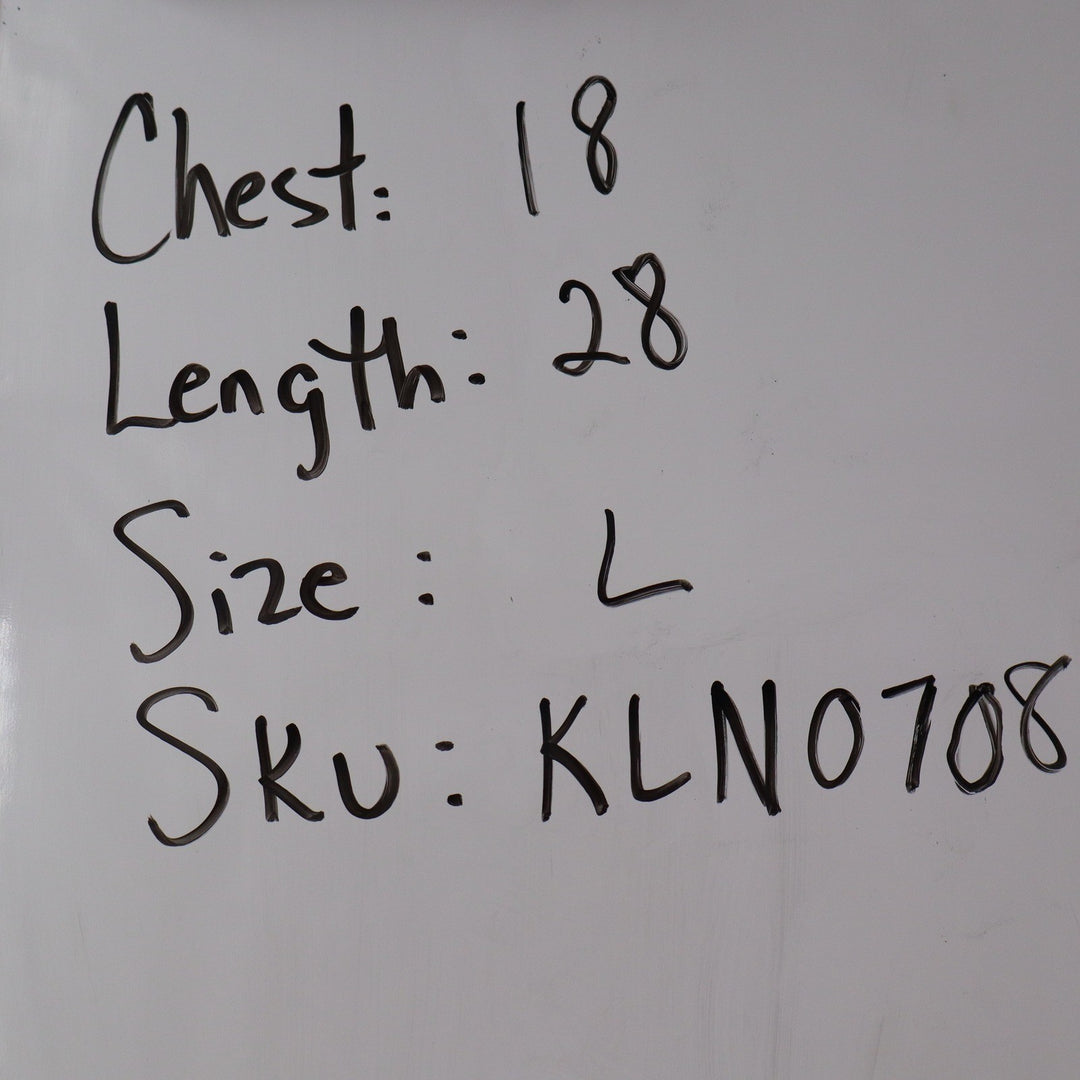 Chest: 18
Length: 28
Size: L
Sku: KLN0708